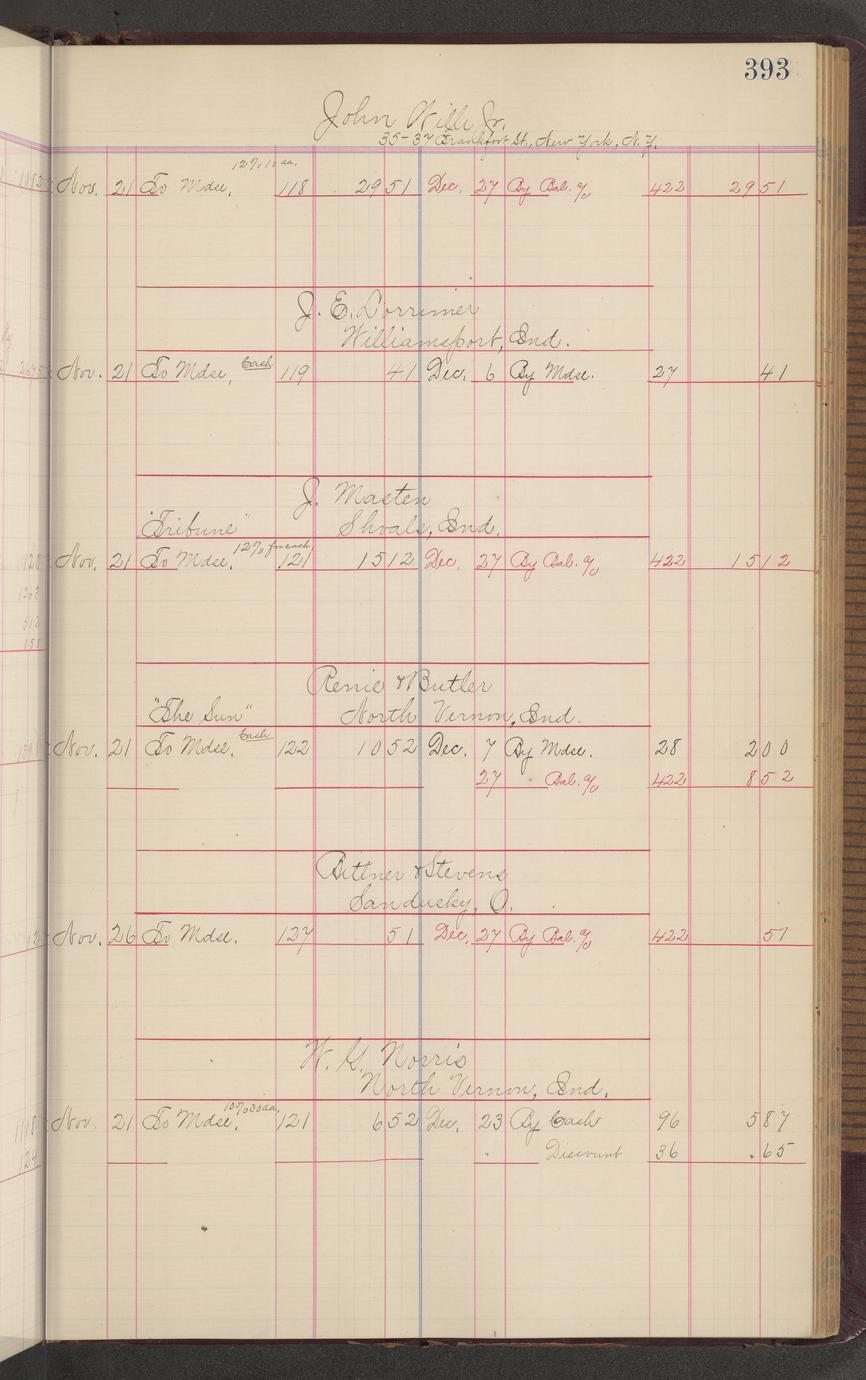 393
John Wille Jr.
35-37 Frankfort St., New York, N.Y.
12% 10 da.
Nov. 21 To Mdse. 118 2951 Dec. 27 By Bal. a/c 422 2951
J. E. Lorrimer
Williamsport, Ind.
Nov. 21 To Mdse, Cash 119 41 Dec. 6 By Mdse. 27 41
J. Masten
"Tribune" Shoals, Ind.
12% for cash,
Nov. 21 To Mdse. 121 1512 Dec. 27 By Bal. a/c 422 1512
Renie & Butler
"The Sun" North Vernon, Ind.
Nov. 21 To Mdse. Cash 122 1052 Dec. 7 By Mdse. 28 200
27 " Bal. a/c 422 852
Bittner & Stevens
Sandusky, O.
Nov. 26 To Mdse. 127 51 Dec. 27 By Bal. a/c 422 51
W. G. Norris
North Vernon, Ind.
10% 30 da.
Nov. 21 To Mdse. 121 652 Dec. 23 By Cash 96 587
" Discount 36 .65